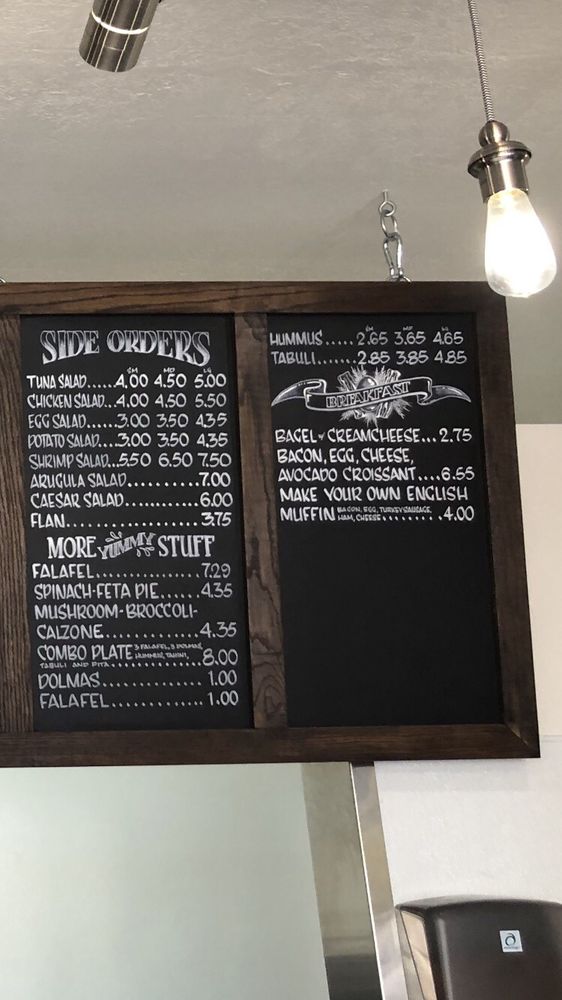 SIDE ORDERS
SM MD LG
TUNA SALAD......4.00 4.50 5.00
CHICKEN SALAD...4.00 4.50 5.50
EGG SALAD......3.00 3.50 4.35
POTATO SALAD...3.00 3.50 4.35
SHRIMP SALAD...5.50 6.50 7.50
ARUGULA SALAD..........7.00
CAESAR SALAD...........6.00
FLAN....................3.75
MORE YUMMY STUFF
FALAFEL................7.29
SPINACH-FETA PIE......4.35
MUSHROOM-BROCCOLI-
CALZONE...............4.35
COMBO PLATE 3 FALAFEL, 3 DOLMAS,
HUMMUS, TAHINI,
TABULI AND PITA..............8.00
DOLMAS................1.00
FALAFEL...............1.00
SM MD LG
HUMMUS.....2.65 3.65 4.65
TABULI......2.85 3.85 4.85
BREAKFAST
BAGEL W CREAMCHEESE...2.75
BACON, EGG, CHEESE,
AVOCADO CROISSANT....6.55
MAKE YOUR OWN ENGLISH
MUFFIN BACON, EGG, TURKEY SAUSAGE,
HAM, CHEESE.........4.00